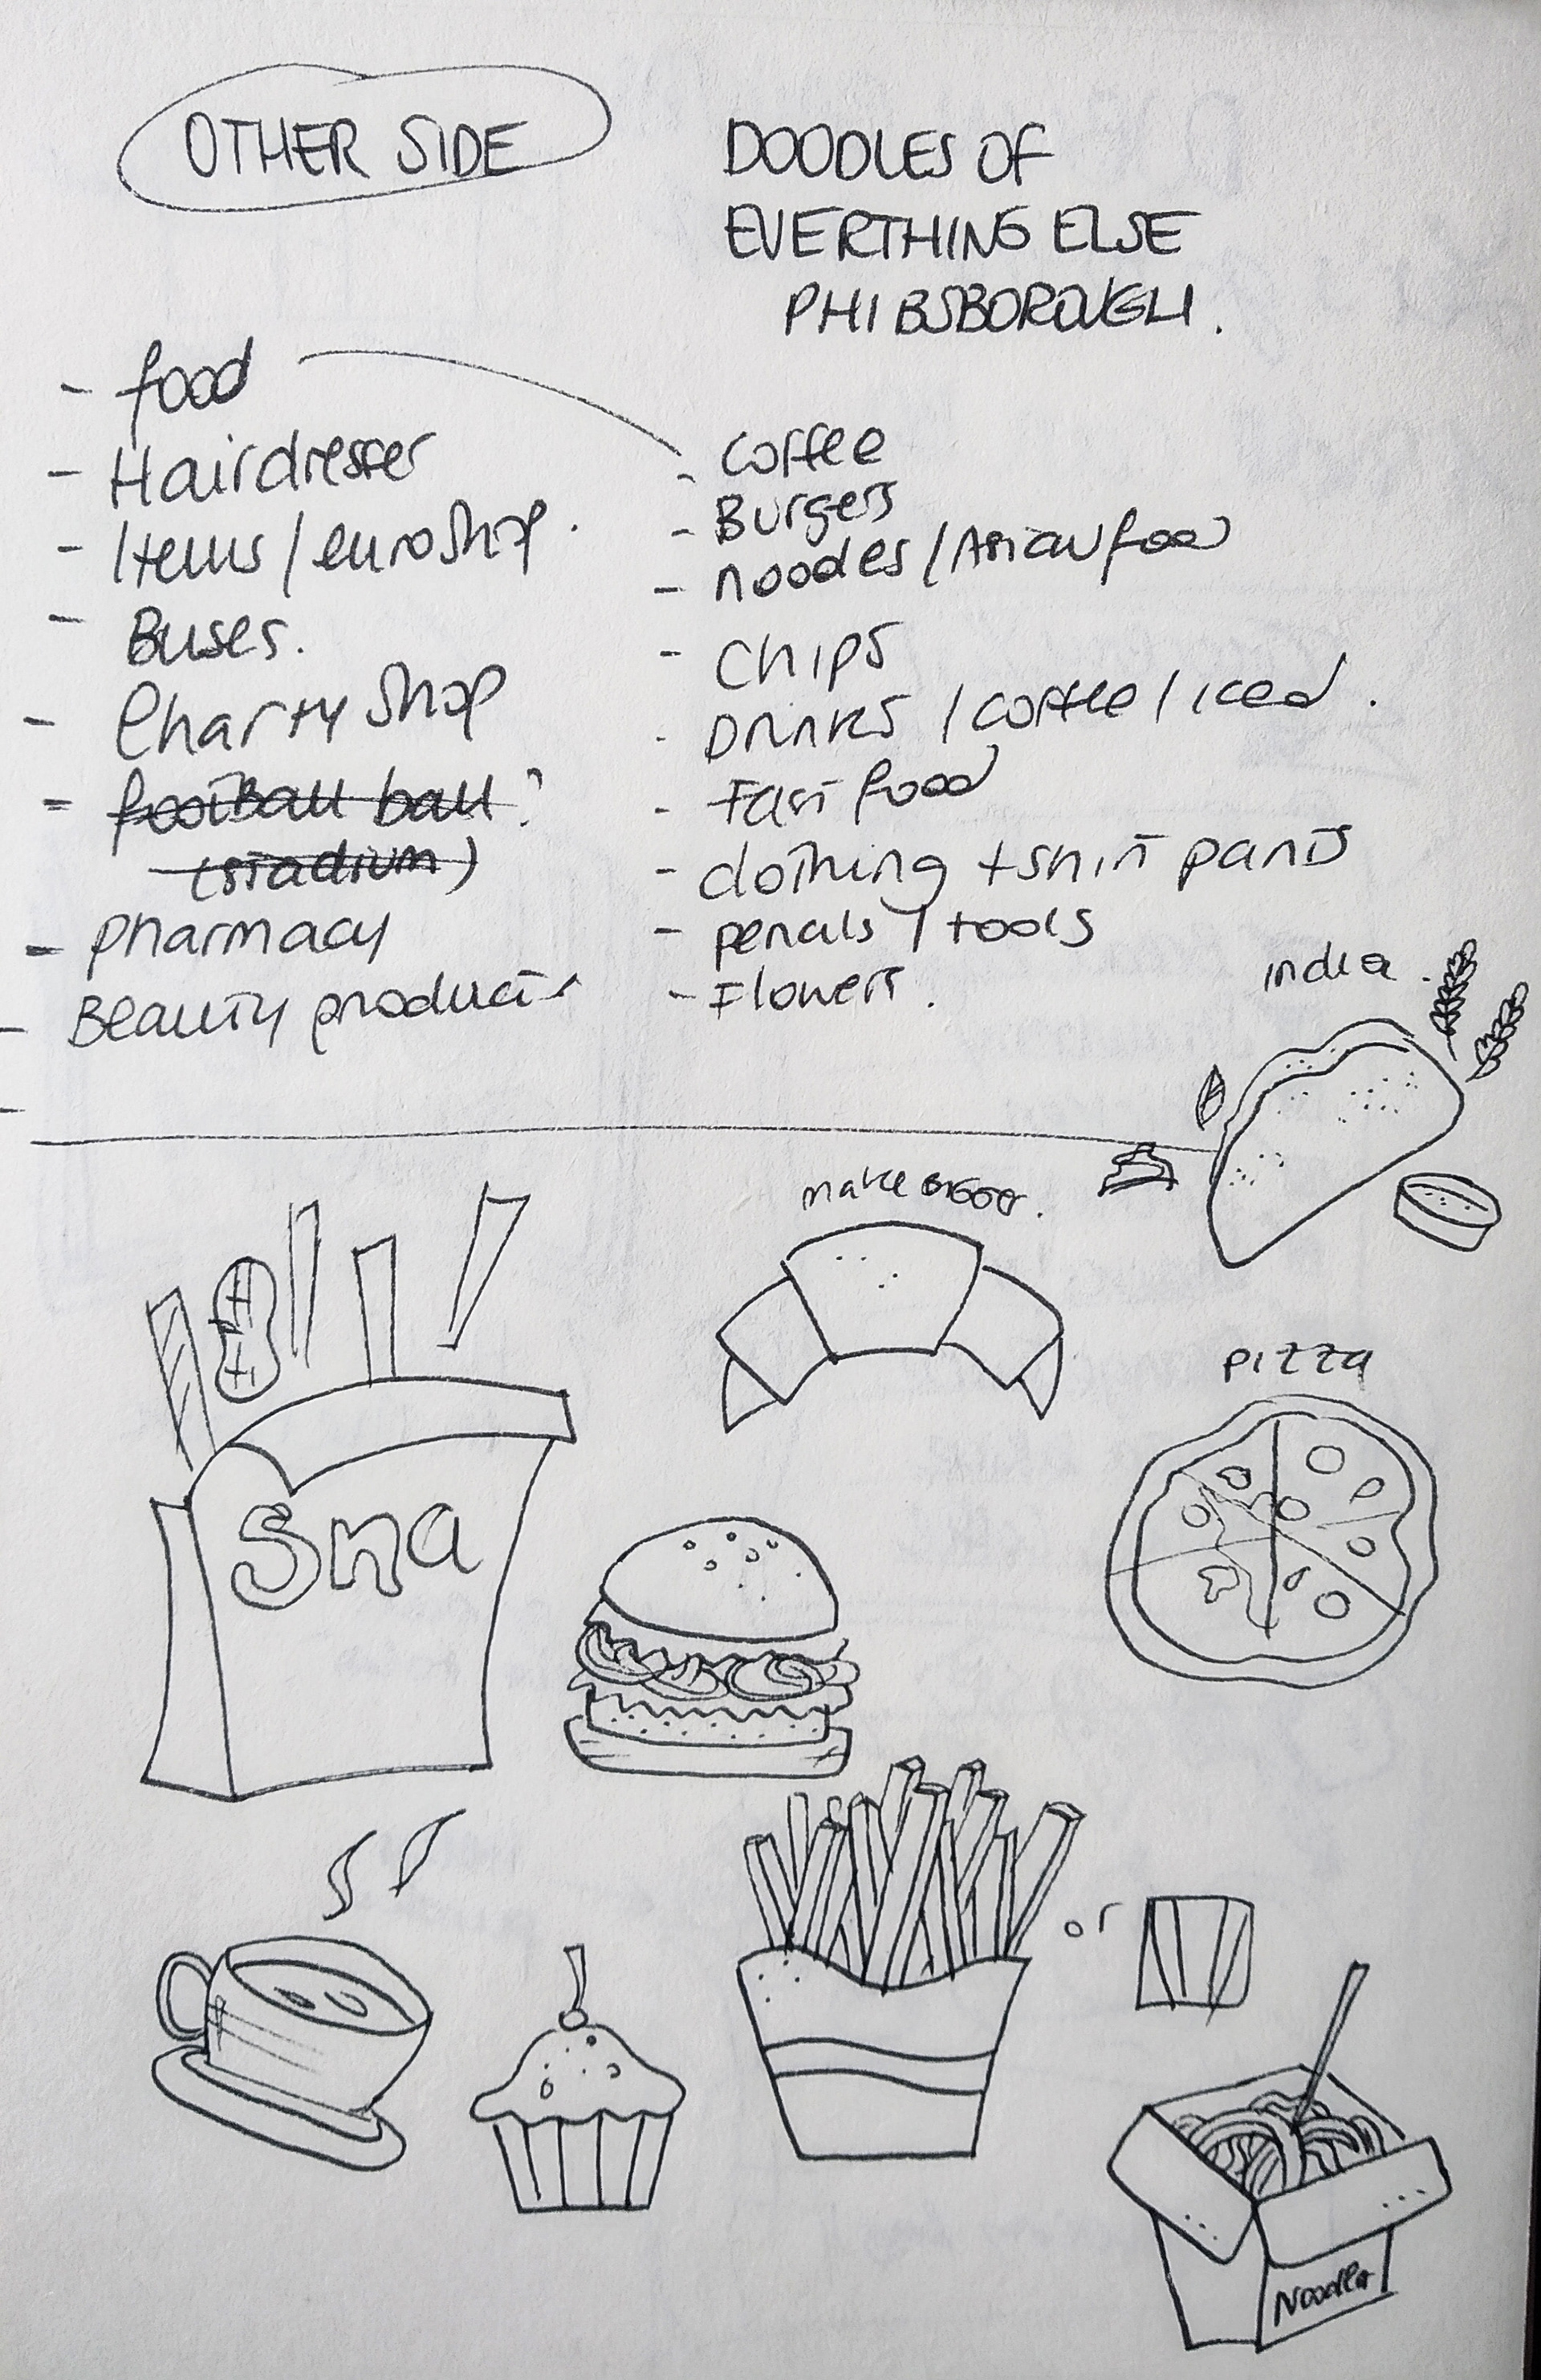 OTHER SIDE
DOODLES OF
EVERTHING ELSE
PHIBSBOROUGH.
- food
- Hairdresser
- Items / euroshop.
- Buses.
- Charity shop
- football ball?
(stadium)
- pharmacy
- Beauty products
-
- Coffee
- Burgers
- noodles / Asian food
- CHIPS
- DRINKS / coffee / iced.
- Fast food
- clothing tshirt pants
- pencils / tools
- Flowers.
india.
make bigger.
pizza
Sna
or
Noodles